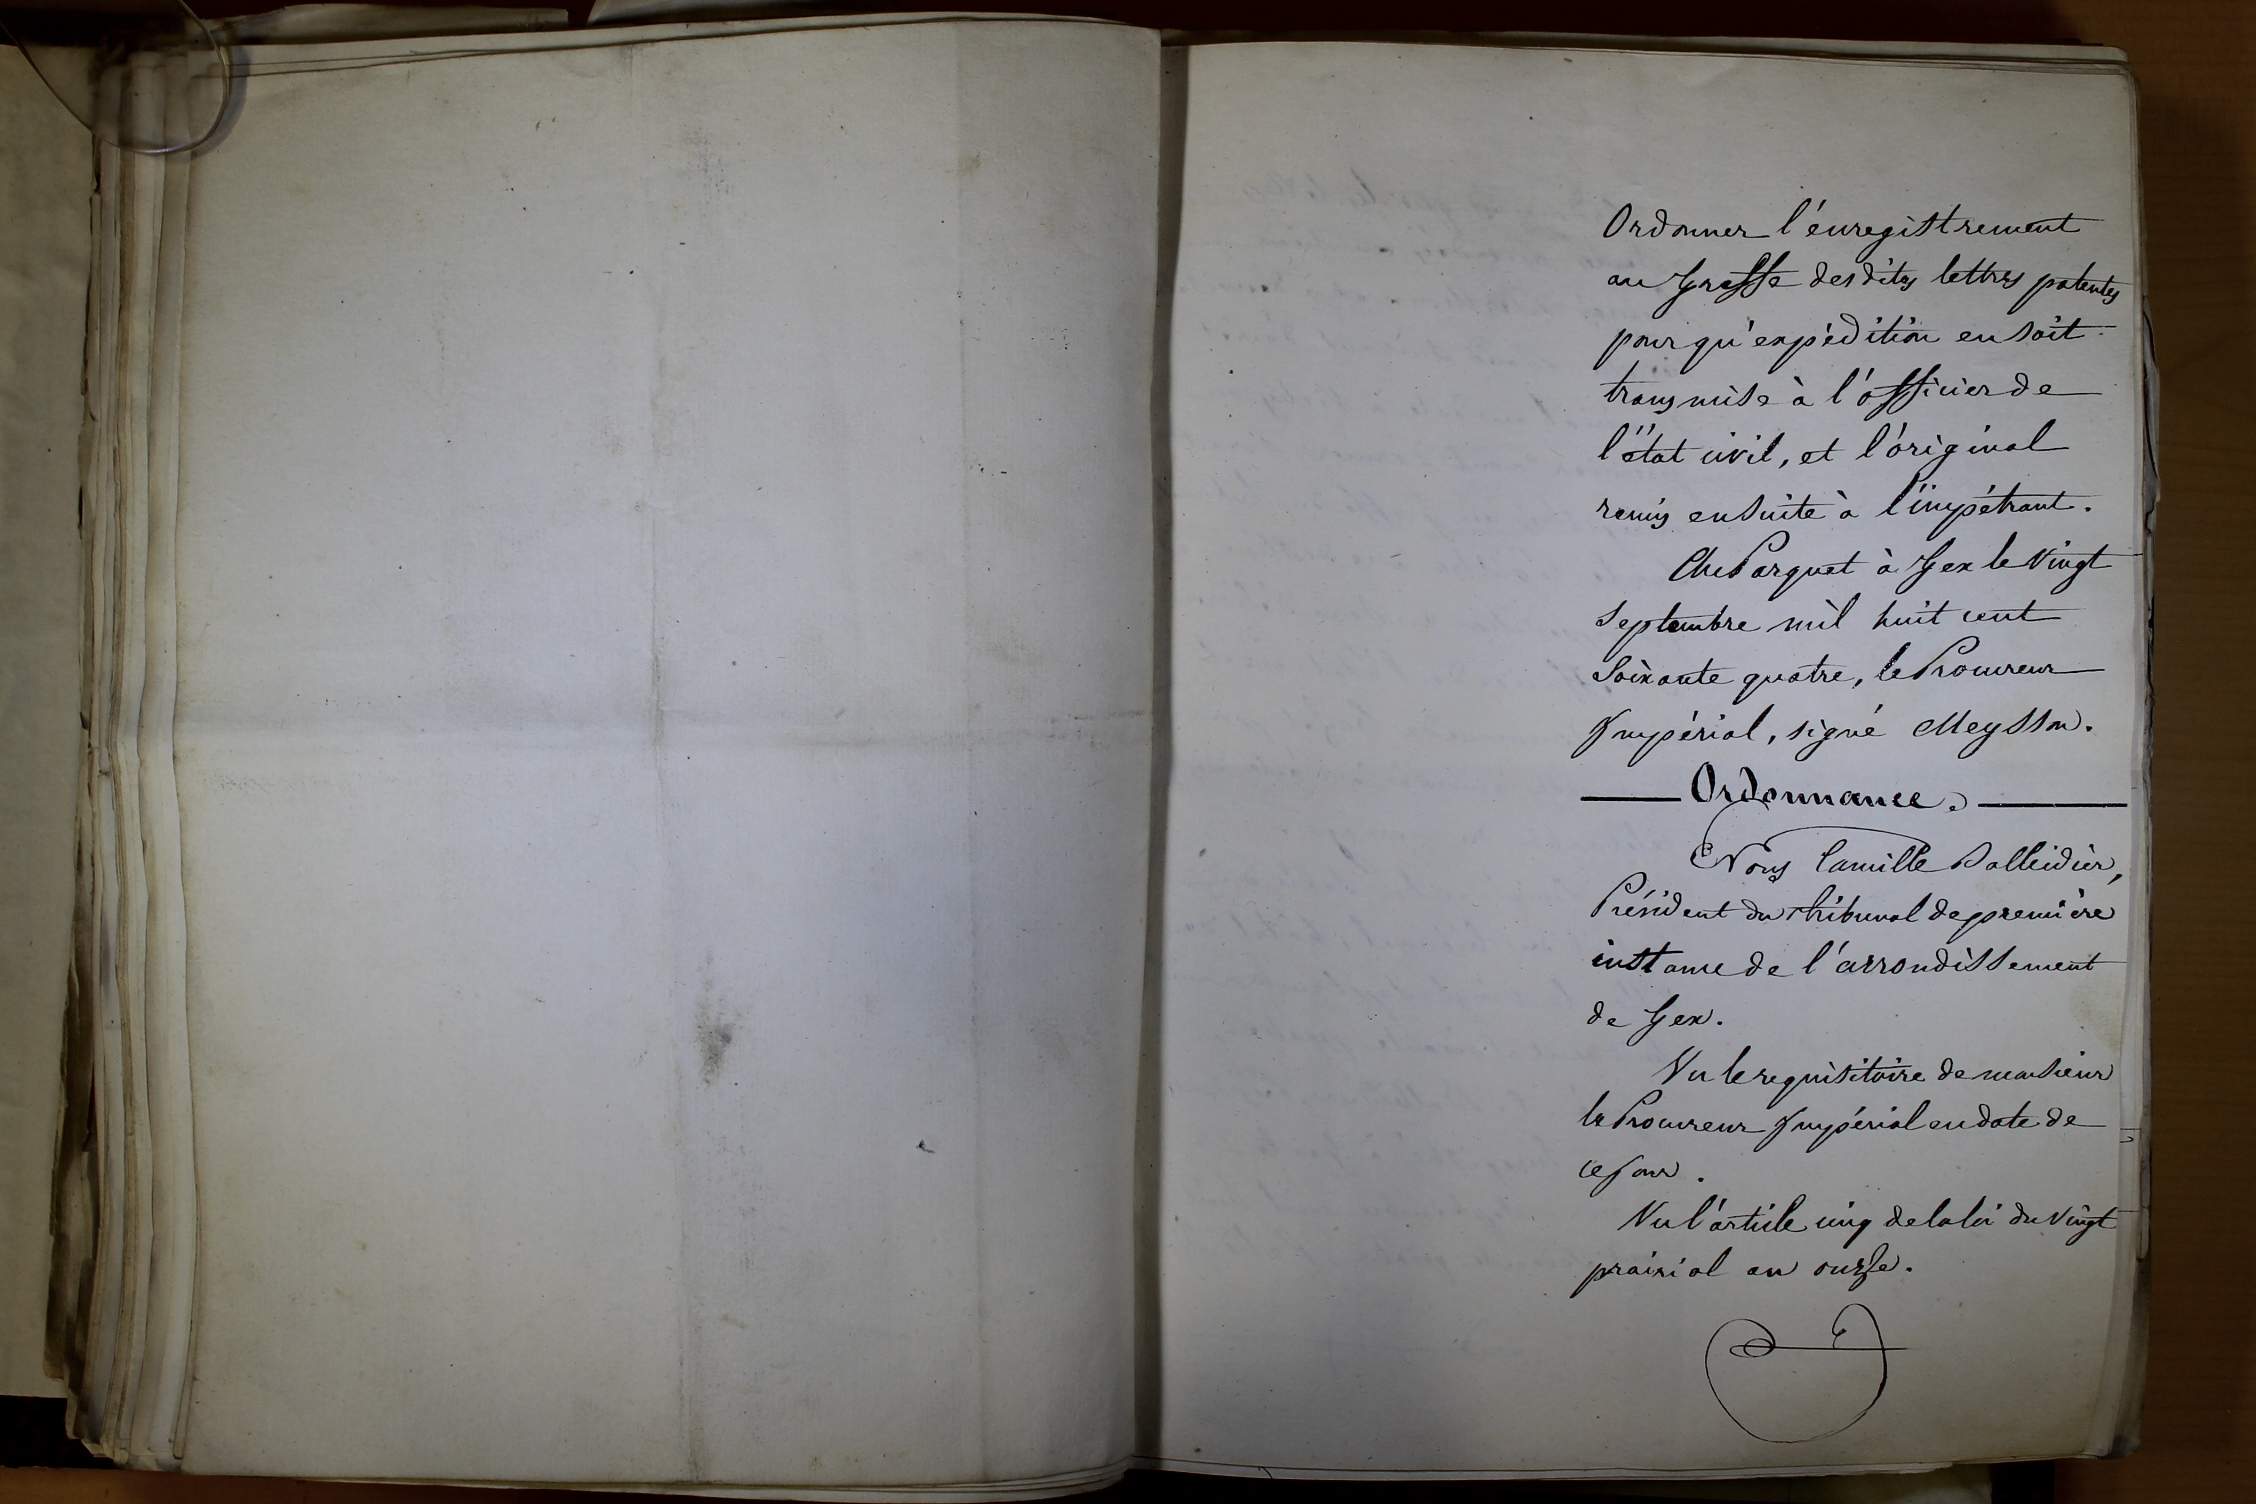 Ordonner l'énregistrement
au Greffe desdites lettres patentes
pour qu'expédition en soit
transmise à l'officier de
l'état civil, et l'original
remis ensuite à l'impétrant.
Au Parquet à Gex le Vingt
Septembre mil huit cent
Soixante quatre, le Procureur
Impérial, signé Meysson.
Ordonnance.
Nous Camille
Président du tribunal de première
instance de l'arrondissement
de Gex.
Vu le requisitoire de monsieur
le Procureur Impérial en date de
ce jour.
Vu l'article cinq de la loi du Vingt
prairial an onze.